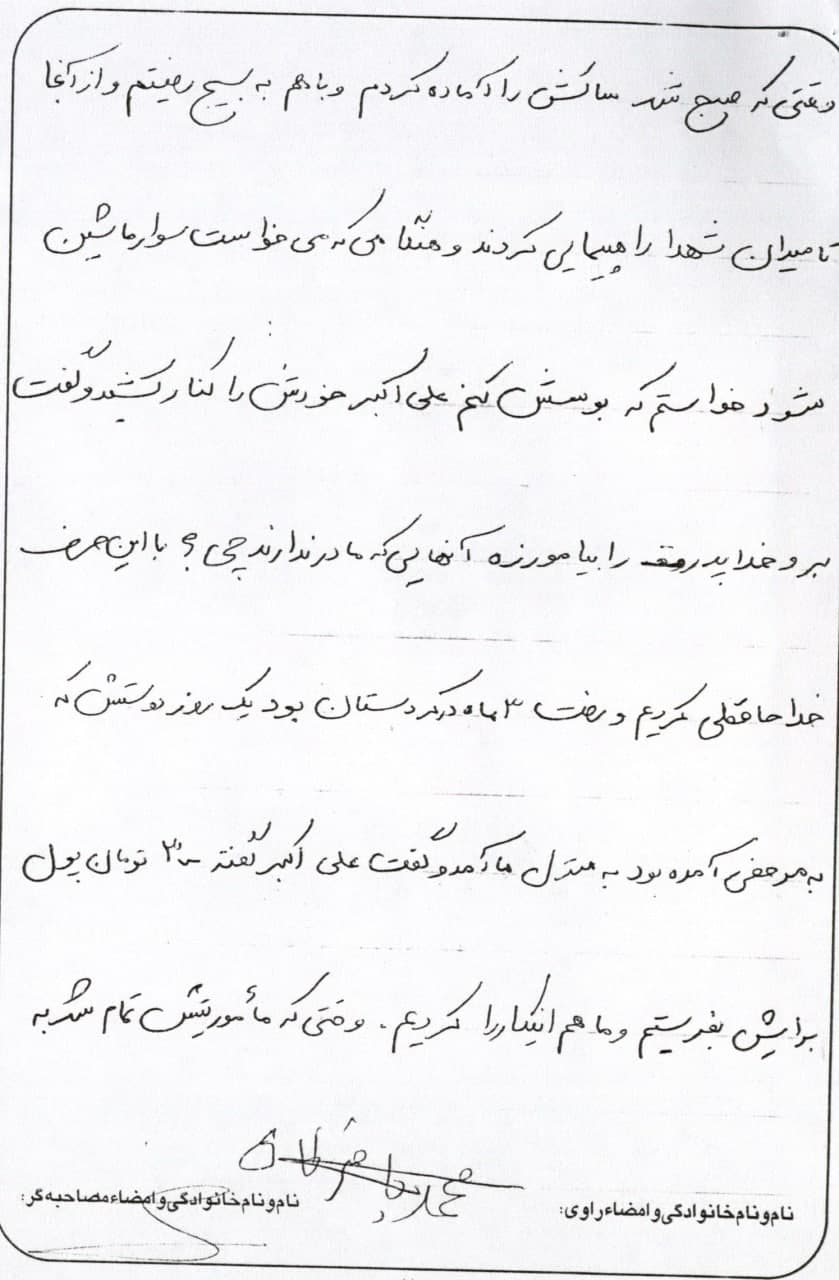 وقتی که صبح شد ساکش را آماده کردم و با هم به بسیج رفتیم و از آنجا
تا میدان شهدا راهپیمایی کردند و هنگامی که می خواست سوار ماشین
شود خواستم که بوسش کنم علی اکبر خودش را کنار کشید و گفت
برو خدا پدرت را بیامورزه آنهایی که مادر ندارند چی؟ با این حرف
خداحافظی کردیم و رفت ۳ ماه در کردستان بود یک روز دوستش که
به مرخصی آمده بود به منزل ما آمد و گفت علی اکبر گفته ۳۰۰ تومان پول
برایش بفرستیم و ما هم اینکار را کردیم. وقتی که مأموریتش تمام شد به
نام و نام خانوادگی و امضاء راوی:
نام و نام خانوادگی و امضاء مصاحبه گر: